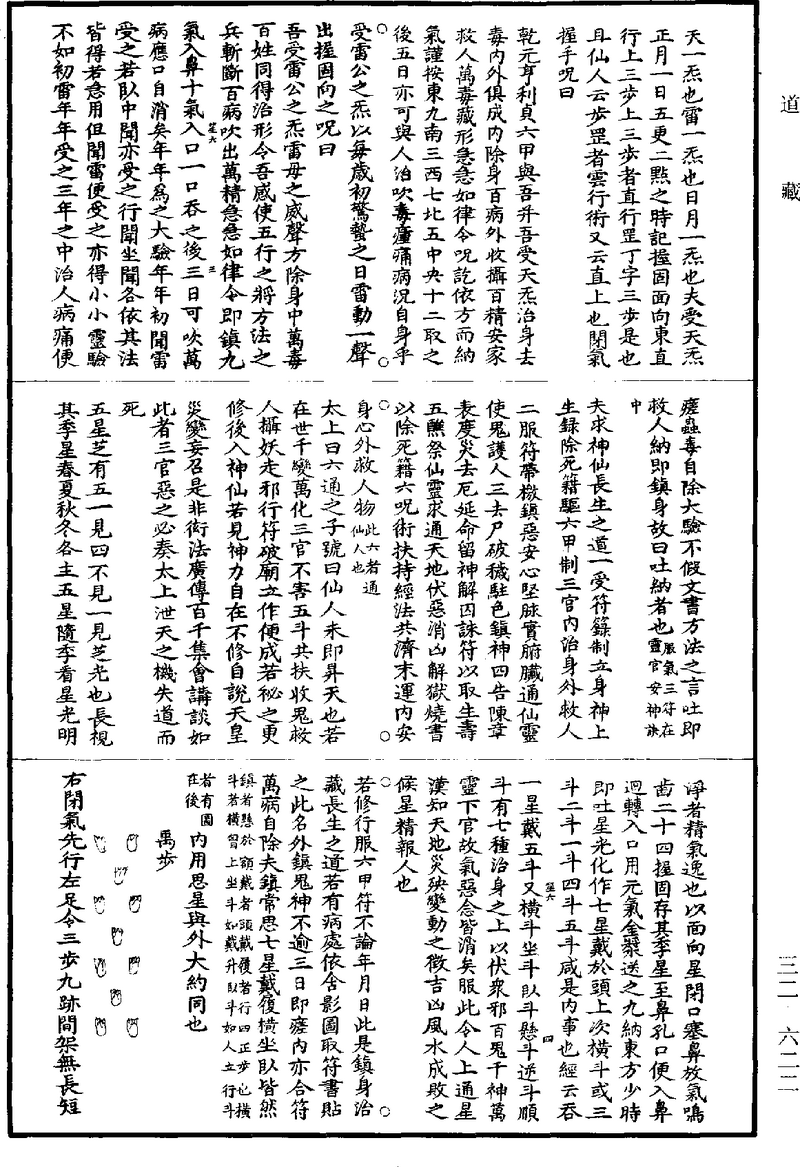 道藏
三二·六二二
天一炁也雷一炁也日月一炁也夫受天炁
正月一日五更二點之時記握固面向東直
行上三步上三步者直行罡丁字三步是也
且仙人云步罡者雲行術又云直上也閉氣
握手呪曰
乾元亨利貞六甲與吾并吾受天炁治身去
毒內外俱成內除身百病外收攝百精安家
救人萬毒藏形急急如律令呪訖依方而納
氣謹按東九南三西七北五中央十二取之
後五日亦可與人治吹毒瘇痛病況自身乎
受雷公之炁以每歲初驚蟄之日雷動一聲
出握固向之呪曰
吾受雷公之炁雷母之威聲方除身中萬毒
百姓同得治形令吾感使五行之將方法之
兵斬斷百病吹出萬精急急如律令即鎮九
氣入鼻十氣入口一口吞之後三日可吹萬
病應口自消矣年年為之大驗年年初聞雷
受之若臥中聞亦受之行聞坐聞各依其法
皆得若意用但聞雷便受之亦得小小靈驗
不如初雷年年受之三年之中治人病痛便
瘥蟲毒自除大驗不假文書方法之言吐即
救人納即鎮身故曰吐納者也服氣三符在靈官安神訣
中
夫求神仙長生之道一受符籙制立身神上
生錄除死籍驅六甲制三官內治身外救人
二服符帶檄鎮惡安心堅脉實腑臟通仙靈
使鬼護人三去尸破穢駐色鎮神四告陳章
表度災去厄延命留神解囚誅符以取生壽
五醮祭仙靈求通天地伏惡消凶解獄燒書
以除死籍六呪術扶持經法共濟末運內安
身心外救人物此六者通仙人也
太上曰六通之子號曰仙人未即昇天也若
在世千變萬化三官不害五斗共扶收鬼救
人攝妖走邪行符破廟立作便成若祕之更
修後入神仙若見神力自在不修自說天皇
災變妄召是非衒法廣傳百千集會講談如
此者三官惡之必奏太上泄天之機失道而
死
五星芝有五一見四不見一見芝光也長視
其季星春夏秋冬各主五星隨季看星光明
淨者精氣逸也以面向星閉口塞鼻放氣鳴
齒二十四握固存其季星至鼻孔口便入鼻
迴轉入口用元氣金漿送之九納東方少時
即吐星光化作七星戴於頭上次橫斗或三
斗二斗一斗四斗五斗咸是內事也經云吞
一星戴五斗又橫斗坐斗臥斗懸斗逆斗順
斗有七種治身之上以伏衆邪百鬼千神萬
靈下官故氣惡念皆消矣服此令人上通星
漢如天地災殃變動之徵吉凶風水成敗之
候星精報人也
若修行服六甲符不論年月日此是鎮身治
藏長生之道若有病處依舍影圖取符書貼
之此名外鎮鬼神不逾三日即瘥內亦合符
萬病自除夫鎮常思七星戴履橫坐臥皆然
鎮者懸於額戴者頭戴履者行四正步也橫斗者橫習上坐斗如戴升臥斗如人立行斗
者有圖在後內用思星與外大約同也
禹步
右閉氣先行左足令三步九跡間架無長短